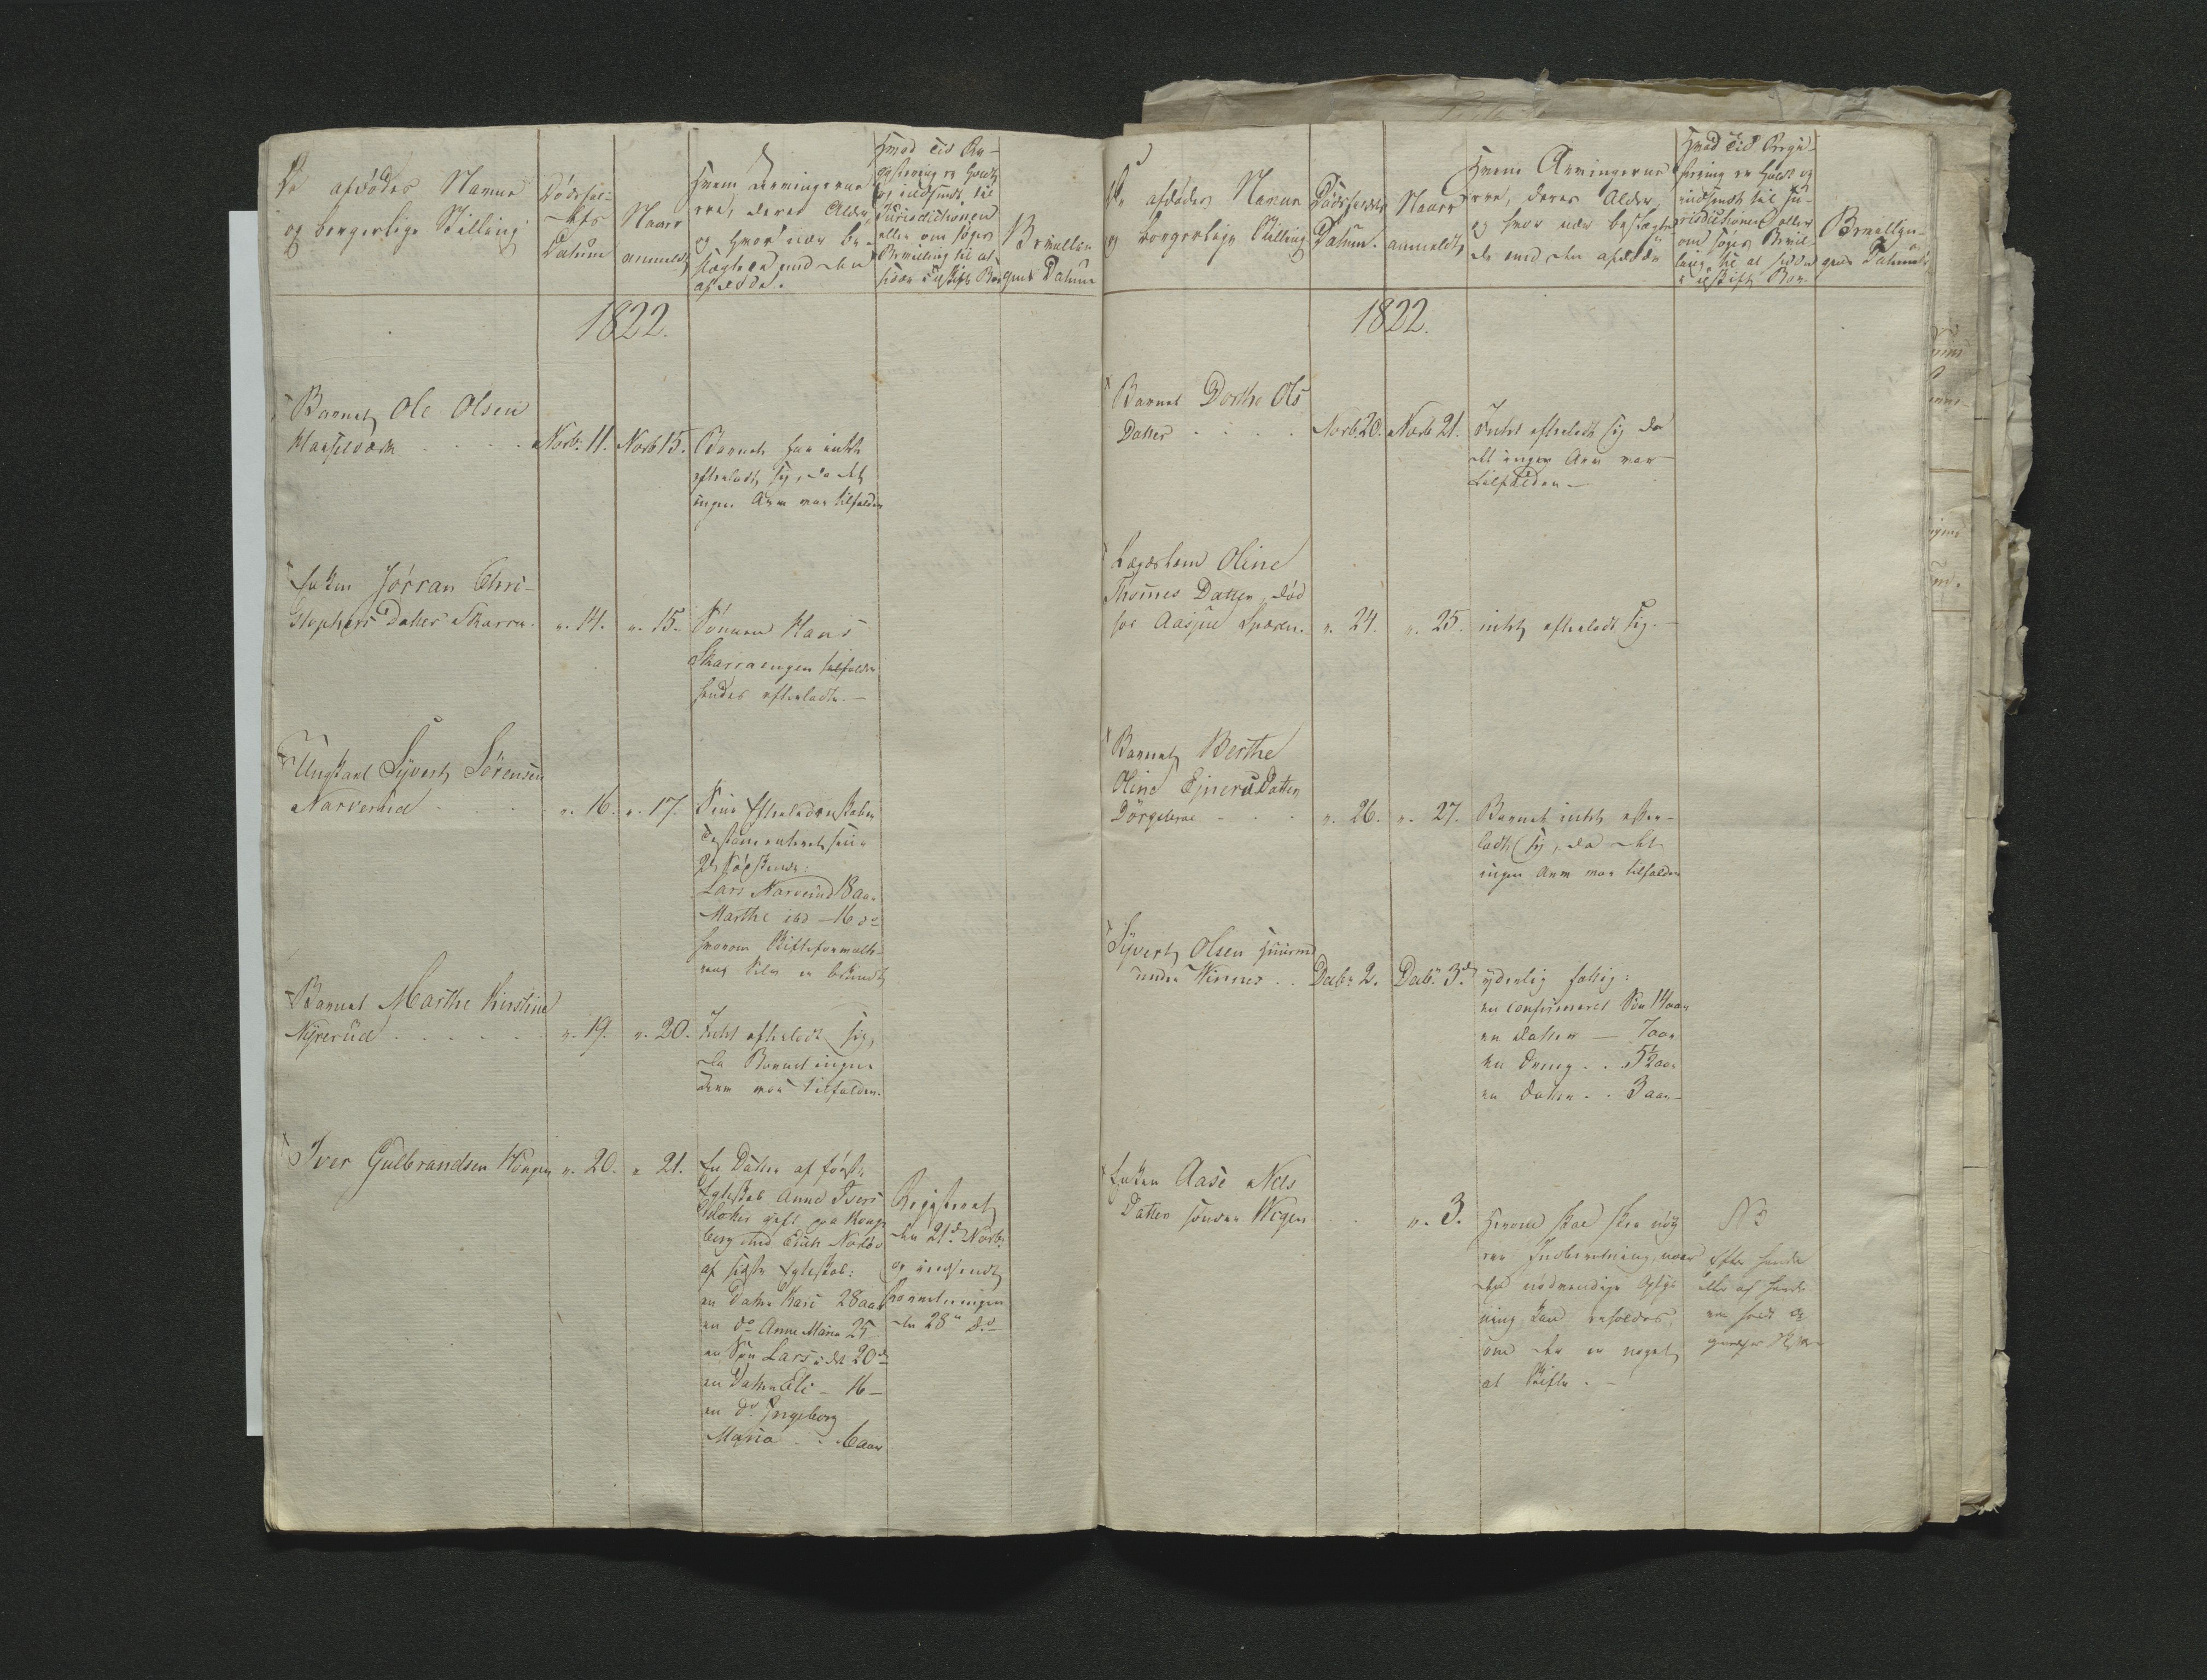 De afdødes Navne
og borgerlige Stilling
Dødsfal-
dets
Datum
Naar
anmeldt
Hvem Arvingerne
ere, deres Alder,
og hvor nær be-
slægtede med den
afdøde.
Hvad Tid Re-
gistering er holdt
og indsendt til
Jurisdictionen
eller om søges
Bevilling til at
sidde i uskiftet Boe
Bevillin-
gens Datum
1822.
Barnet Ole Olsen
Novbr 11. Novb 15. Barnet har intet
efterladt sig, da det
ingen Arv var tilfalden
Enken Jörran Chri-
stophers Datter Skarra. " 14. " 15. Sönnen Hans
Skarraengen tilfalder
hendes efterladte. —
Ungkarl Syvert Sörensen
Narverud " 16. " 17. Sine Efterladenskaber
testamenteret sine
2de Sødskende:
Lars Narverud 18 aar
Marthe ibd — 16 do
hvorom Skifteforvalte-
ren er bekiendt
Barnet Marthe Kirstine
Nyrerüd " 19. " 20. Intet efterladt sig,
da Barnet ingen
Arv var tilfalden.
Iver Gulbrandsen " 20. " 21. En Datter af første
Egteskab Anne Ivers
Datter gift paa Kongs
berg med
af sidste Egteskab:
en Datter Kari 28 aar
en do Anne Maria 25 —
en Søn Lars i det 20de
en Datter Eli — 16 —
en do Ingeborg
Maria . . 6 aar
Registeret
den 21de Novbr
og indsendt
den 28de do
De afdødes Navne
og borgerlige Stilling
Dødsfaldets
Datum.
Naar
anmeldt
Hvem Arvingerne
ere, deres Alder,
og hvor nær beslægte-
de med den afdøde
Hvad Tid Regi-
stering er holdt og
indsendt til Ju-
risdictionen eller
om søges Bevil-
ling til at sidde
i uskiftet Boe.
Bevillin-
gens Datum
1822.
Barnet Dorthe Ols
Datter Novb 20. Novb 21. Intet efterladt sig da
det ingen Arv var
tilfalden —
Lægdslem Oline
Thomes Datter, død
hos Aasjue Speren. " 24. " 25. intet efterladt sig. —
Barnet Berthe
Oline Ejners Datter
" 26. " 27. Barnet intet efter-
ladt sig, da det
ingen Arv var tilfalden
Syvert Olsen Huusmd
under Vinnes . . Decbr 2. Decbr 3de yderlig fattig:
en confirmeret Søn 14 aar
en Datter — 7 aar
en Dreng . . 5½ aar
en Datter . . 3 aar —
Enken Aase Nels
Datter søndre Wegen " 3. Herom skal skee nöj
ere Indberetning, naar
den nødvendige Oplys
ning kan erholdes,
om der er noget
at skifte. —
NB